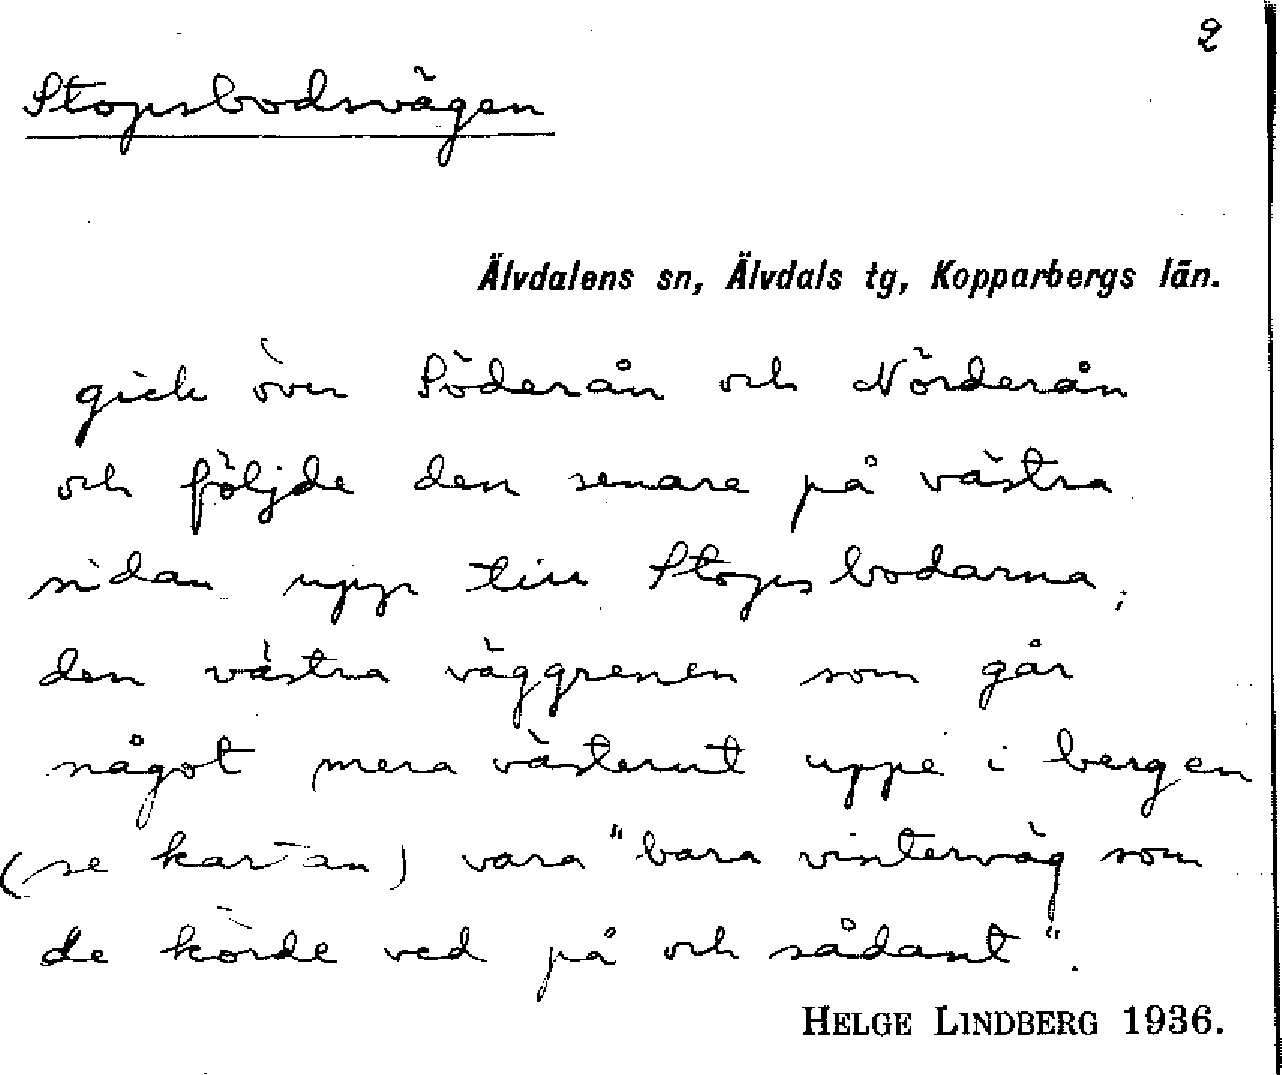 2
Stopsbodsvägen
Älvdalens sn, Älvdals tg, Kopparbergs län.
gick över Söderån och Nörderån
och följde den senare på västra
sidan upp till Stopsbodarna;
den västra väggrenen som går
något mera västerut uppe i bergen
(se kartan) vara "bara vinterväg som
de körde ved på och sådant".
HELGE LINDBERG 1936.